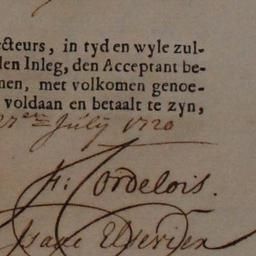 ecteurs, in tyd en wyle zul-
den Inleg, den Acceptant be-
men, met volkomen genoe-
voldaan en betaalt te zyn,
27en Julij 1720
F: Cordelois.
Isaac Elsevier